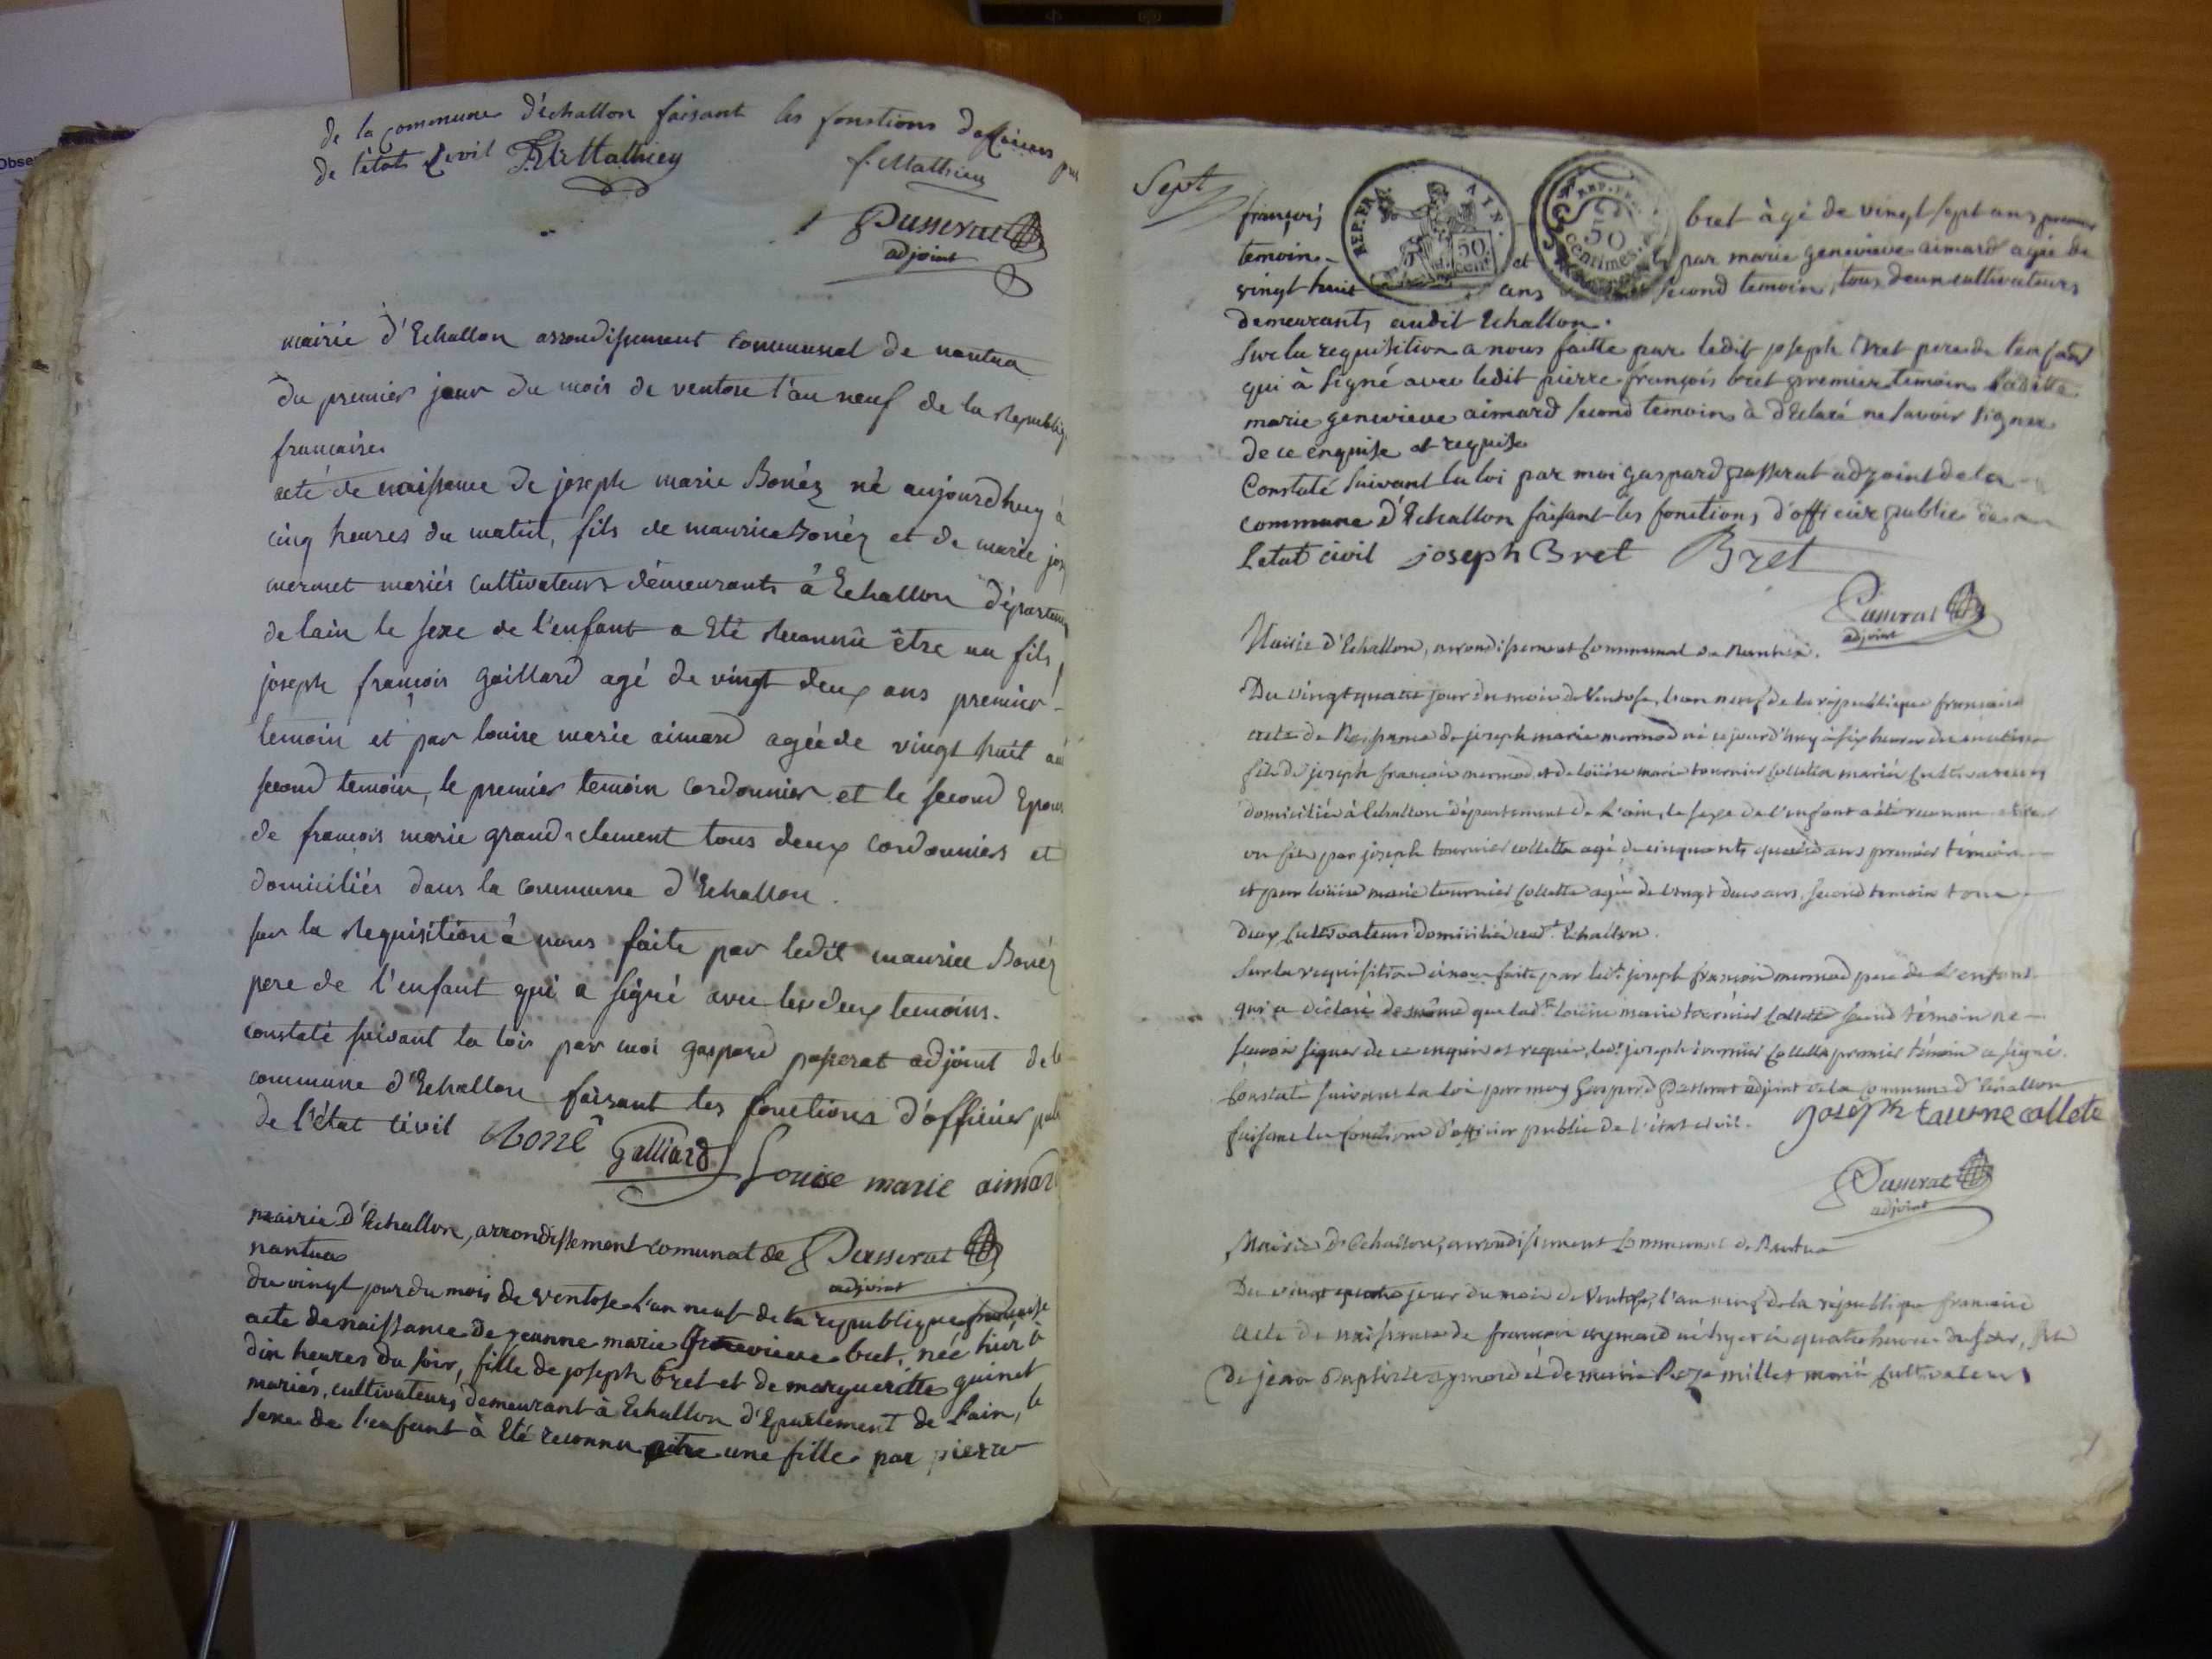 de la commune d'échallon faisant les fonctions d'officiers
de l'état Civil Mathieu
f. Mathieu
Passerat
adjoint
mairie d'Echallon arrondissement communal de nantua
du premier jour du mois de ventose l'an neuf de la Republiq
francaise
acte de naissance de joseph marie Bonéz né aujourdhuy à
cinq heures du matin, fils de maurice Bonéz et de marie jos
mermet mariés cultivateurs démeurants à Echallon départem
de lain le sexe de l'enfant a Eté reconnû être un fils,
joseph françois gaillard agé de vingt deux ans premier
temoin et par louise marie aimard agée de vingt huit an
second temoin, le premier temoin cordonnier et le second Epous
de francois marie grand-clement tous deux cordonniers et
domiciliés dans la commune d'Echallon.
sur la requisition à nous faite par ledit maurice Bonéz
pere de l'enfant qui a signé avec les deux temoins.
constaté suivant la loix par moi gaspard passerat adjoint de la
commune d'Echallon faisant les fonctions d'officier publ
de l'état civil Boné Galliard Louise marie aimar
mairie d'Echallon, arrondissement comunal de Passerat
nantua
adjoint
du vingt jour du mois de ventose l'an neuf de la republique francaise
acte de naissance de jeanne marie genevieve bret, née hier à
dix heures du soir, fille de joseph bret et de marguerite guinet
mariés, cultivateurs demeurant à Echallon d'Epartement de l'ain, le
sexe de l'enfant à Eté reconnu etre une fille par pierre
Sept
REP. FRA.
50
cent.
REP. FRA.
50
centimes
françois bret àgé de vingt sept ans premier
temoin et par marie genevieve aimard agée de
vingt huit ans second temoin, tous deux cultivateurs
demeurants audit Echallon.
Sur la requisition a nous faitte par ledit joseph bret pere de l'enfant
qui à signé avec ledit pierre françois bret premier temoin ladite
marie genevieve aimard second temoin à d'Eclaré ne savoir signer
de ce enquise et requise
Constaté suivant la loi par moi gaspard passerat adjoint de la
commune d'Echallon faisant les fonctions d'officier public de
l'etat civil joseph Bret Bret
Passerat
adjoint
Mairie d'Echallon, arrondissement Communal de Nantua.
Du vingt quatre jour du mois de Ventose, l'an neuf de la république francaise
acte de Naissance de joseph marie mermod né cejourd'huy à six heures du matin
fils de joseph françois mermod et de loüise marie tournier Collette mariés Cultivateurs
domiciliés à Echallon département de L'ain, le sexe de l'enfant a été reconnu etre
un fils par joseph tournier collette agé de cinquante quatre ans premier témoin
et par loüise marie tournier Collette agée de vingt deux ans, second temoin tous
deux Cultivateurs domiciliés aud.t Echallon.
Sur la requisition à nous faite par led.t joseph francois mermod pere de L'enfant
qui a déclaré de même que lad.te loüise marie tournier Collette second témoin ne
scavoir signer de ce enquis et requis, led.t joseph tournier Collette premier témoin a signé.
Constaté suivant la loi par moy Gaspard Passerat adjoint de la Commune d'Echallon
faisant les fonctions d'officier public de l'état civil. joseph tourne collete
Passerat
adjoint
Mairie D'Echallon, arrondissement Communal de Nantua
Du vingt quatre jour du mois de Ventose, l'an neuf de la république francaise
Acte de naissance de francois aymard né hyer à quatre heures du soir, fils
de jean Baptiste aymard et de marie millet mariés Cultivateurs